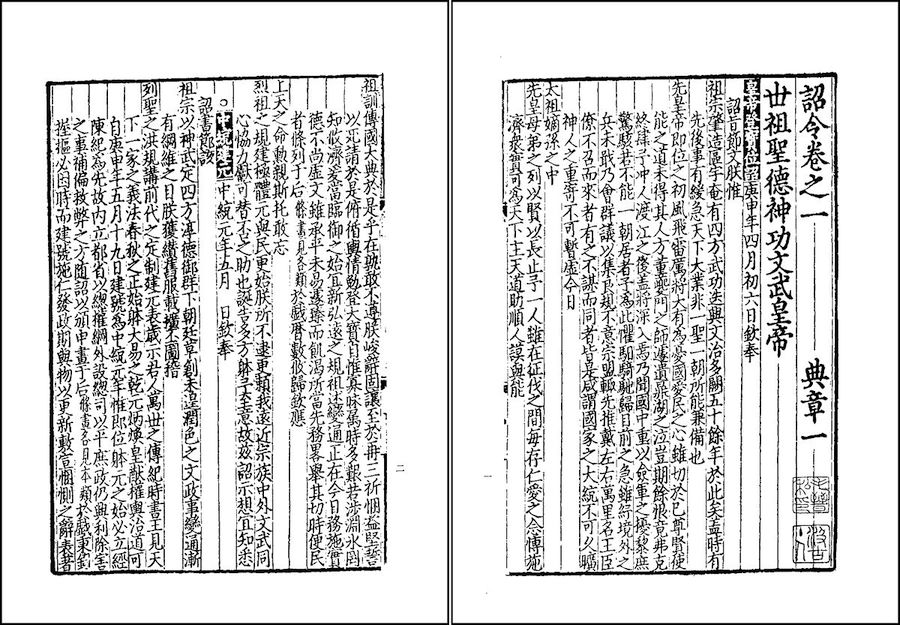 詔令卷之一 典章一
世祖聖德神功文武皇帝
皇帝登寶位詔 庚申年四月初六日欽奉
詔旨節文朕惟
祖宗肇造區宇奄有四方武功迭興文治多闕五十餘年於此矣蓋時有
先後事有緩急天下大業非一聖一朝所能兼備也
先皇帝即位之初風飛雷厲將大有為憂國愛民之心雖切於己尊賢使
能之道未得其人方董夔門之師遽遺鼎湖之泣豈期餘恨竟弗克
終肆予冲人渡江之後蓋將深入焉乃聞國中重以僉軍之擾黎庶
驚駭若不能一朝居者予為此懼馹騎馳歸目前之急雖紓境外之
兵未戢乃會群議以集良規不意宗盟輒先推戴左右萬里名王臣
僚不召而來者有之不謀而同者皆是咸謂國家之大統不可久曠
神人之重寄不可暫虛今日
太祖嫡孫之中
先皇母弟之列以賢以長止予一人雖在征伐之間每存仁愛之念博施
濟衆實可為天下主天道助順人謨與能
祖訓傳國大典於是乎在孰敢不遵朕峻辭固讓至于再三祈懇益堅誓
以死請於是俯徇輿情勉登大寶自惟寡昧屬時多艱若涉淵氷罔
知攸濟爰當臨御之始宜新弘遠之規祖述變通正在今日務施實
德不尚虛文雖承平未易遽臻而飢渴所當先務畧舉其切時便民
者條列于后 於戲曆數攸歸欽應
上天之命勳親斯托敢忘
烈祖之規建極體元與民更始朕所不逮更頼我遠近宗族中外文武同
心協力獻可替否之助也誕告多方躰予至意故茲詔示想宜知悉
中統建元 中統元年五月 日欽奉
詔書節該
祖宗以神武定四方淳德御群下朝廷草創未遑潤色之文政事變通漸
有綱維之目朕獲纘舊服載擴丕圖稽
列聖之洪規講前代之定制建元表歲示君人萬世之傳紀時書王見天
下一家之義法春秋之正始躰大易之乾元炳煥皇猷權輿治道可
自庚申年五月十九日建號為中統元年惟即位躰元之始必立經
陳紀為先故内立都省以總權綱外設總司以平庶政仍興利除害
之事補偏救弊之方隨詔以頒申畫于后 於戲秉籙
握樞必因時而建號施仁發政期與物以更新敷宣懇惻之辭表著
一
二